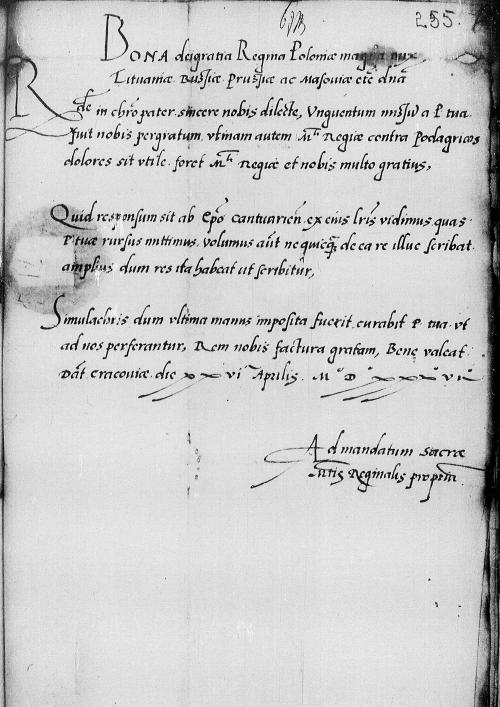 255.
BONA dei gratia Regina Poloniæ magna dux
Lituaniæ Russiæ Prussiæ ac Masoviæ etc̄ dnā
Rde in chrō pater sincere nobis dilecte, Unguentum missū a P tua
fuit nobis pergratum, vtinam autem Mti Regiæ contra Podagricos
dolores sit vtile. foret Mti Regiæ et nobis multo gratius,
Quid responsum sit ab Epō Cantuarien̄. ex eius lrīs vidimus quas
P. tuæ rursus mittimus. volumus aūt ne quicq̄ de ea re illuc scribat
amplius dum res ita habeat ut scribitur,
Simulachris dum vltima manus imposita fuerit. curabit P. tua. vt
ad nos perferantur, Rem nobis factura gratam, Bene valeat
Dat̄ Cracoviæ die xxvi Aprilis. Mo Do xxxo viio
Ad mandatum Sacræ
Mtis Reginalis propriū